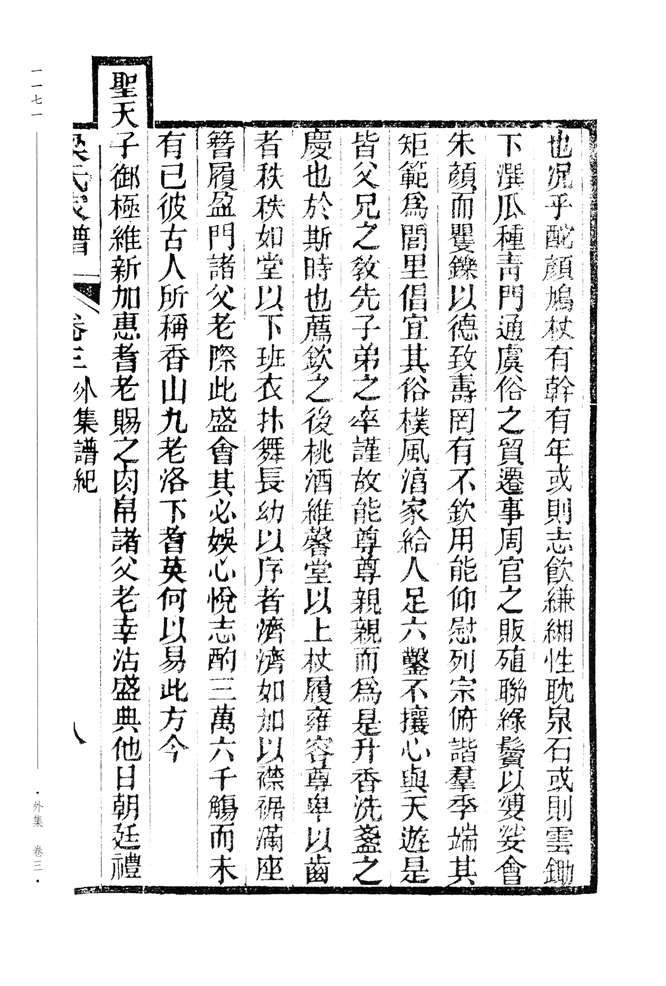 也況乎酡顏鳩杖有幹有年或則志飲縑緗性耽泉石或則雲鋤
下潠瓜種靑門通虞俗之貿遷事周官之販殖聯綠鬢以婆娑會
朱顏而矍鑠以德致壽罔有不欽用能仰慰列宗俯諧羣季端其
矩範爲閭里倡宜其俗樸風淯家給人足六鑿不攘心與天遊是
皆父兄之敎先子弟之率謹故能尊尊親親而爲是升香洗盞之
慶也於斯時也薦歆之後桃酒維馨堂以上杖履雍容尊卑以齒
者秩秩如堂以下班衣抃舞長幼以序者濟濟如加以襟裾滿座
簪履盈門諸父老際此盛會其必娛心悅志酌三萬六千觴而未
有已彼古人所稱香山九老洛下耆英何以易此方今
聖天子御極維新加惠耆老賜之肉帛諸父老幸沾盛典他日朝廷禮
梁氏家譜 卷三 外集譜紀 八
一一七一
·外集 卷三·